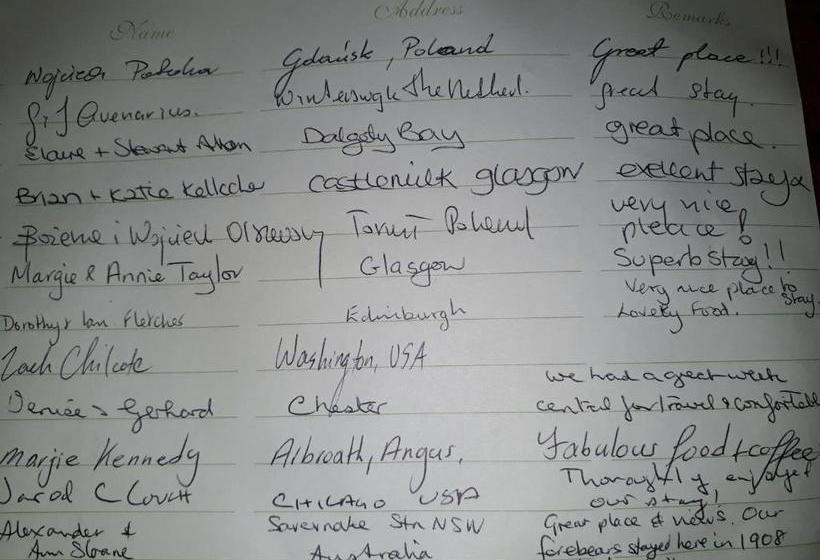 Name Address Remarks
Gdańsk, Poland Great place!!!
Winterswyk the Netherl. great stay.
Quenarius.
Elaine + Stewart Dalgety Bay great place.
Brian + Katie Kelleher Castlemilk Glasgow exellent staya
Bożena i Wojciech Toruń Poland very nice pleace!
Margie & Annie Taylor Glasgow Superb stay!!
Dorothy & Ian Fletcher Edinburgh Very nice place to stay.
Lovely Food.
Zach Chilcote Washington, USA
Denise & Gerhard Chester we had a great week
central for travel & confortable
Marjie Kennedy Arbroath, Angus. Fabulous food + coffee
Jarod C CHICAGO USA Thoroughly enjoyed
our stay!
Alexander & Savernake Stn NSW Great place & views. Our
Ann Sloane Australia forebears stayed here in 1908